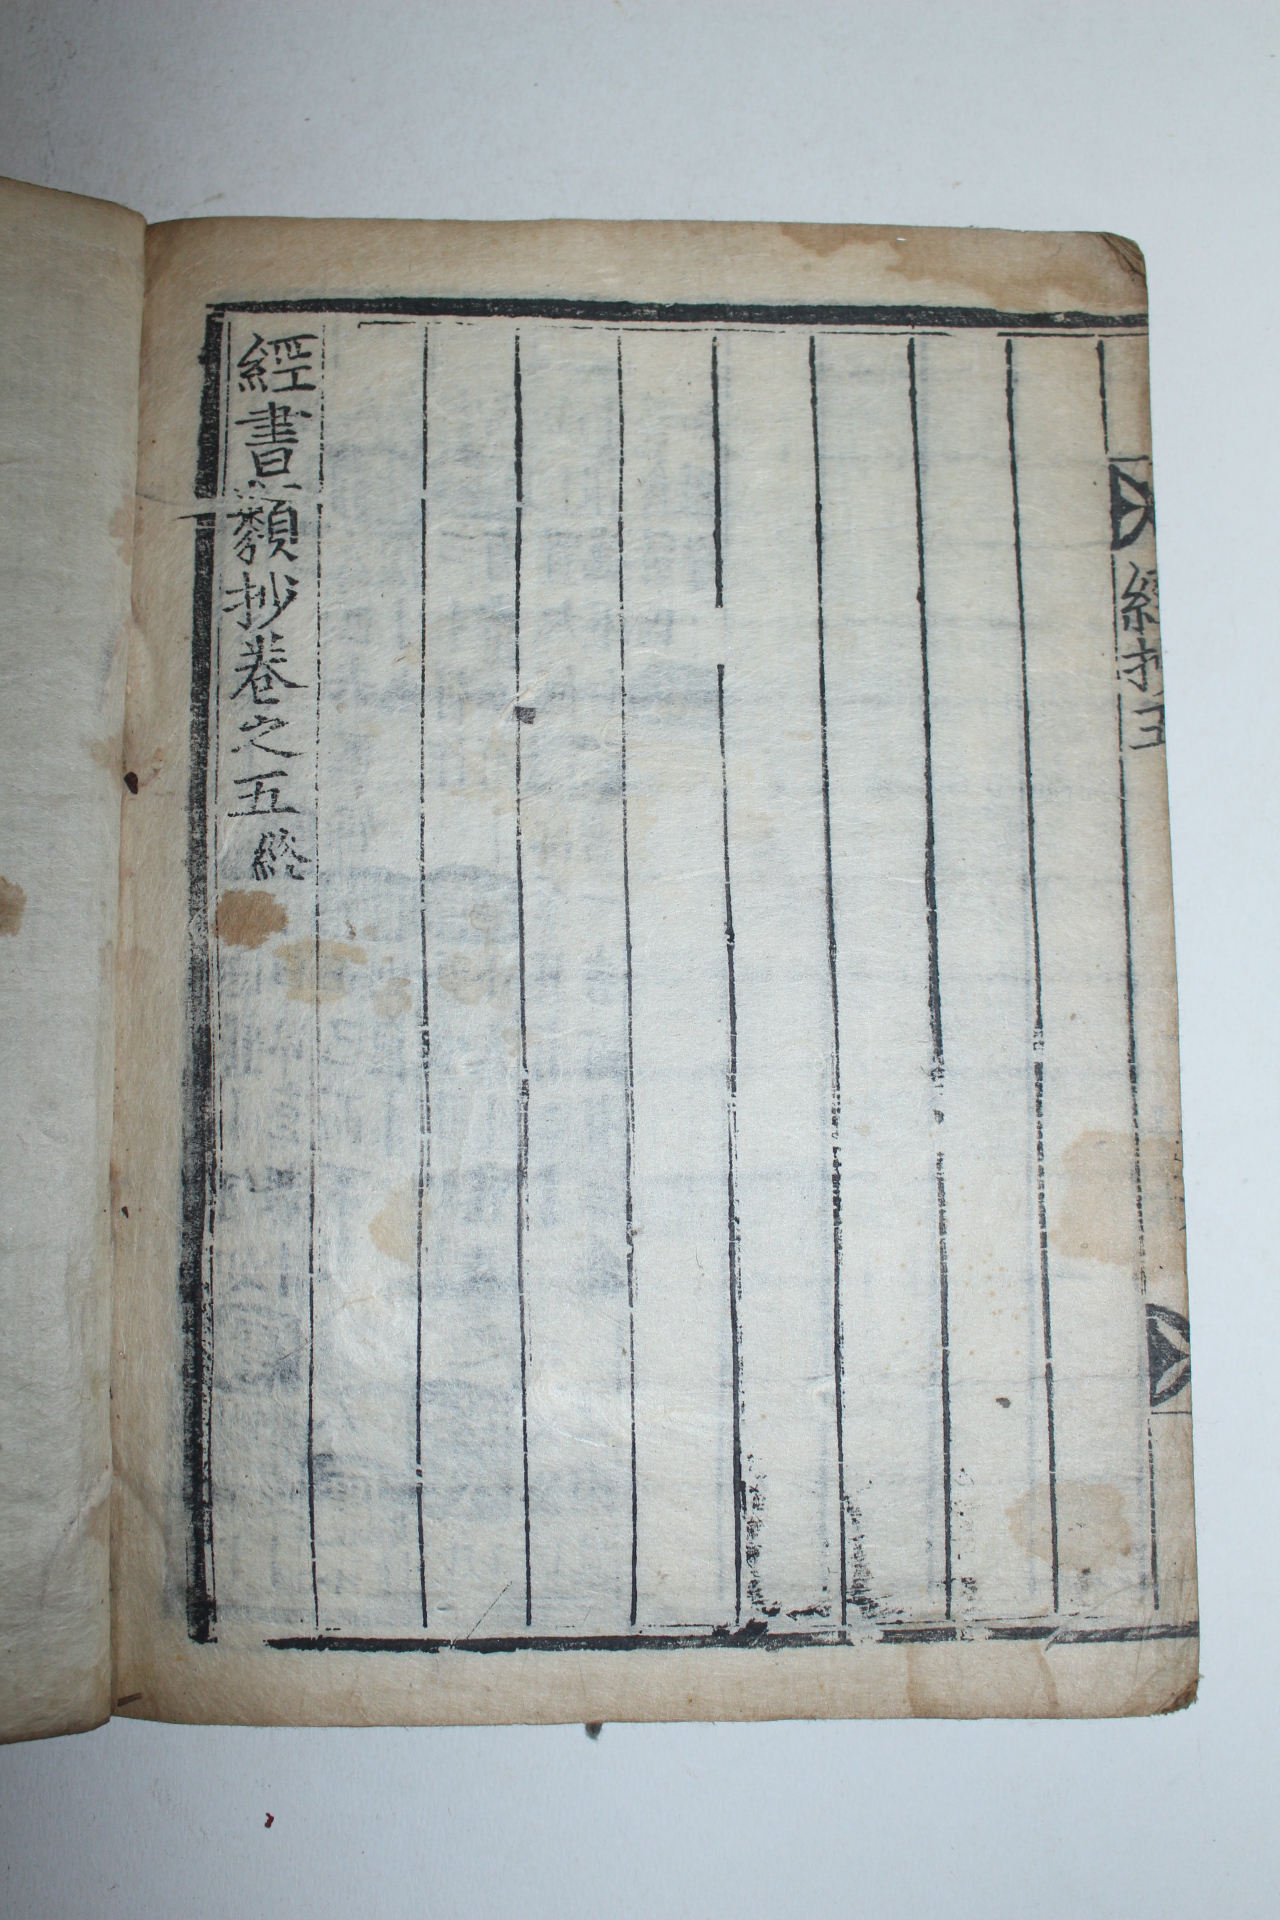 經抄五
經書類抄卷之五 終